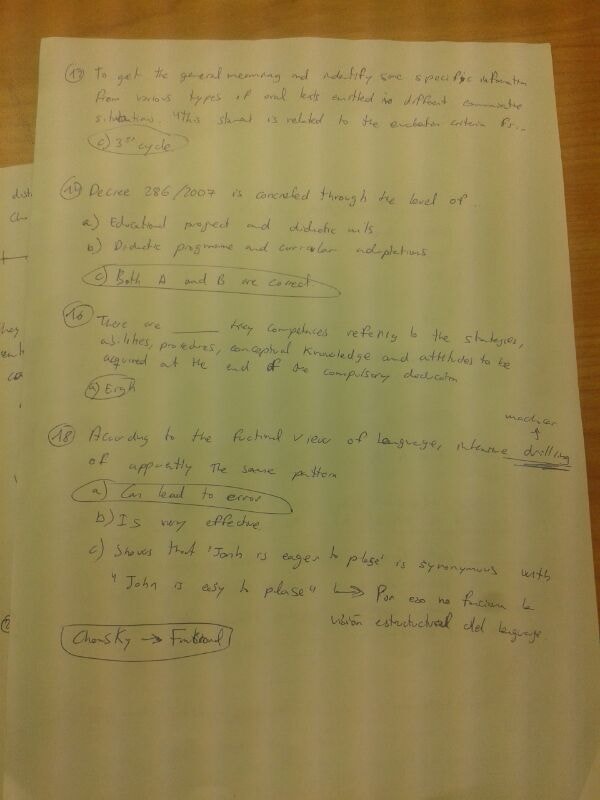 13) To get the general meaning and indentify some specific information
from various types of oral texts emitted in different communicative
situations. "this stament is related to the evaluation criteria for...
c) 3rd cycle
14) Decree 286/2007 is concreted through the level of...
a) Educational project and didactic units
b) Didactic programme and curricular adaptations
c) Both A and B are correct
16) There are _____ key competences refering to the strategies,
abilities, procedures, conceptual knowledge and attitudes to be
acquired at the end of the compulsory
a) Eigh
machacar
18) According to the fuctional view of language, intensive drilling
of apparently the same pattern
a) Can lead to error
b) Is very effective.
c) Shows that 'Jonh is eager to plase' is synonymous with
"John is easy to plase" → Por eso no funciona la
visión estructural del language.
ChomsKy → Funtional
dist